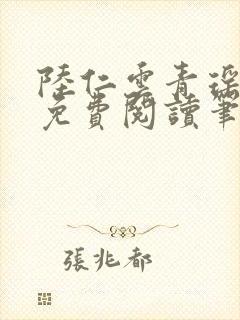 陸仁雲青瑤
免費閱讀筆
張兆都